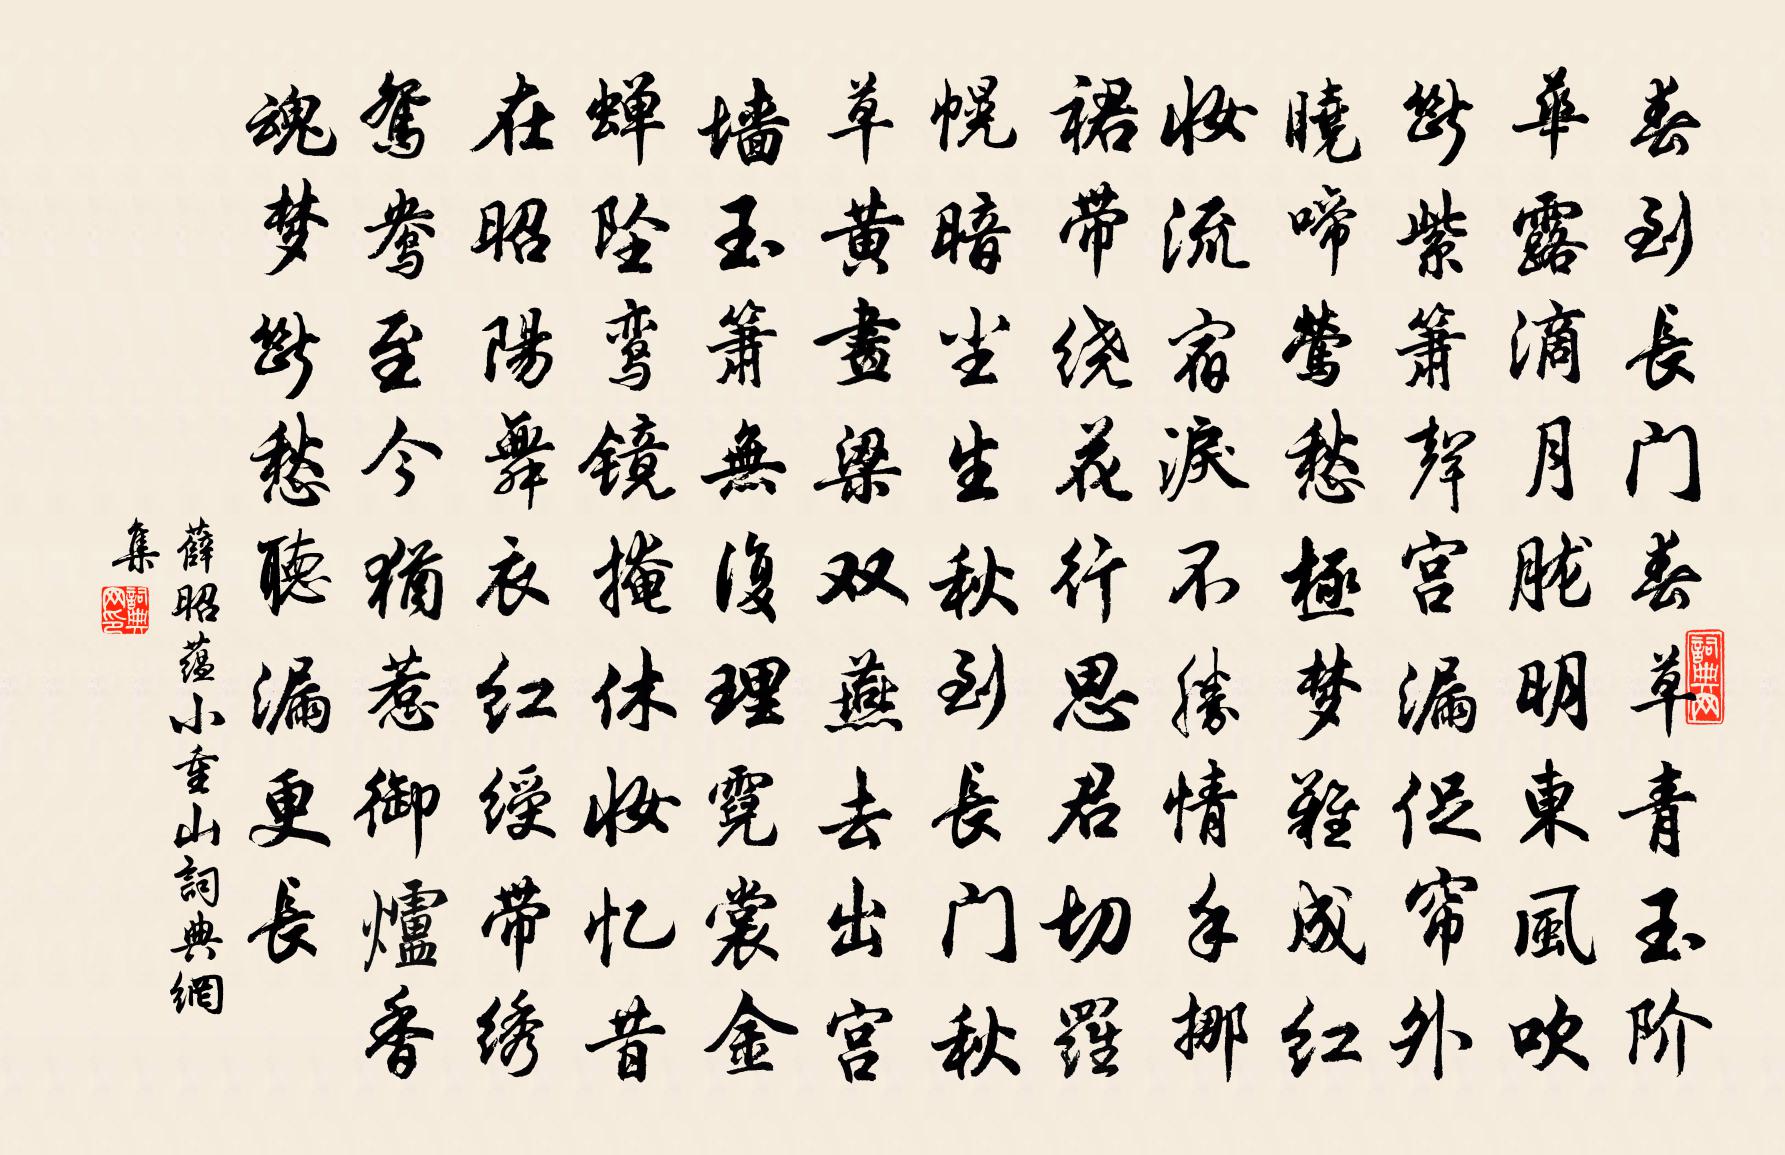 春到長门春草青玉阶
華露滴月胧明東風吹
斷紫簫聲宫漏促帘外
曉啼鶯愁極梦難成红
妆流宿淚不勝情手挪
裙带绕花行思君切羅
幌暗尘生秋到長门秋
草黄畫梁双燕去出宫
墙玉簫無復理霓裳金
蝉坠鸾镜掩休妆忆昔
在昭陽舞衣红綬带绣
鸳鸯至今猶惹御爐香
魂梦斷愁聽漏更長
薛昭蕴小重山詞典網
集
詞典网
詞典网印